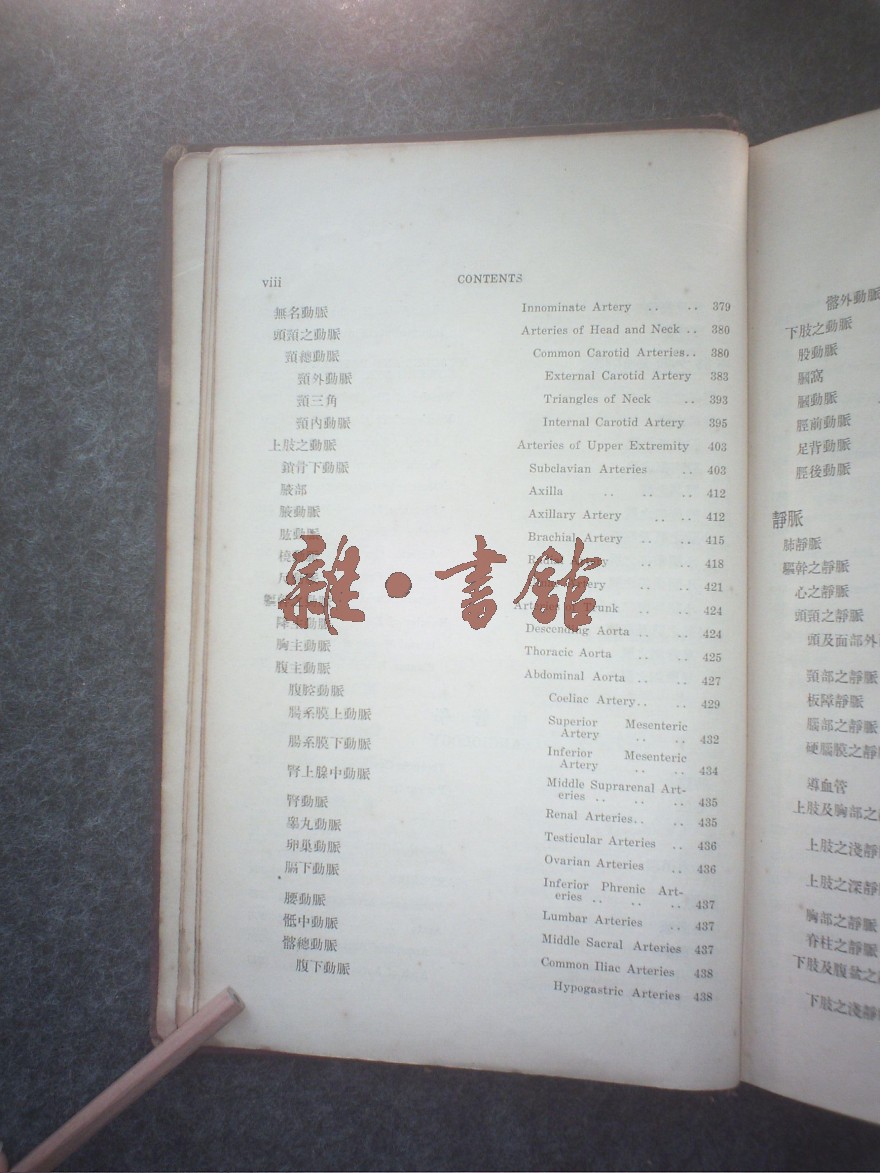 viii CONTENTS
無名動脈 Innominate Artery .. .. 379
頭頸之動脈 Arteries of Head and Neck .. 380
頸總動脈 Common Carotid Arteries.. 380
頸外動脈 External Carotid Artery 383
頸三角 Triangles of Neck .. 393
頸內動脈 Internal Carotid Artery 395
上肢之動脈 Arteries of Upper Extremity 403
鎖骨下動脈 Subclavian Arteries .. 403
腋部 Axilla .. .. .. 412
腋動脈 Axillary Artery .. .. 412
肱動脈 Brachial Artery .. .. 415
.. .. 418
.. .. 421
Trunk .. .. 424
Descending Aorta .. .. 424
胸主動脈 Thoracic Aorta .. .. 425
腹主動脈 Abdominal Aorta .. .. 427
腹腔動脈 Coeliac Artery.. .. 429
腸系膜上動脈 Superior Mesenteric
Artery .. .. 432
腸系膜下動脈 Inferior Mesenteric
Artery .. .. 434
腎上腺中動脈 Middle Suprarenal Art-
eries .. .. .. 435
腎動脈 Renal Arteries.. .. 435
睾丸動脈 Testicular Arteries .. 436
卵巢動脈 Ovarian Arteries .. 436
膈下動脈 Inferior Phrenic Art-
eries .. .. .. 437
腰動脈 Lumbar Arteries .. 437
骶中動脈 Middle Sacral Arteries 437
髂總動脈 Common Iliac Arteries 438
腹下動脈 Hypogastric Arteries 438
雜·書館
髂外動脈
下肢之動脈
股動脈
膕窩
膕動脈
脛前動脈
足背動脈
脛後動脈
靜脈
肺靜脈
軀幹之靜脈
心之靜脈
頭頸之靜脈
頭及面部外
頸部之靜脈
板障靜脈
腦部之靜脈
硬腦膜之靜
導血管
上肢及胸部之
上肢之淺靜
上肢之深靜
胸部之靜脈
脊柱之靜脈
下肢及腹盆之
下肢之淺靜